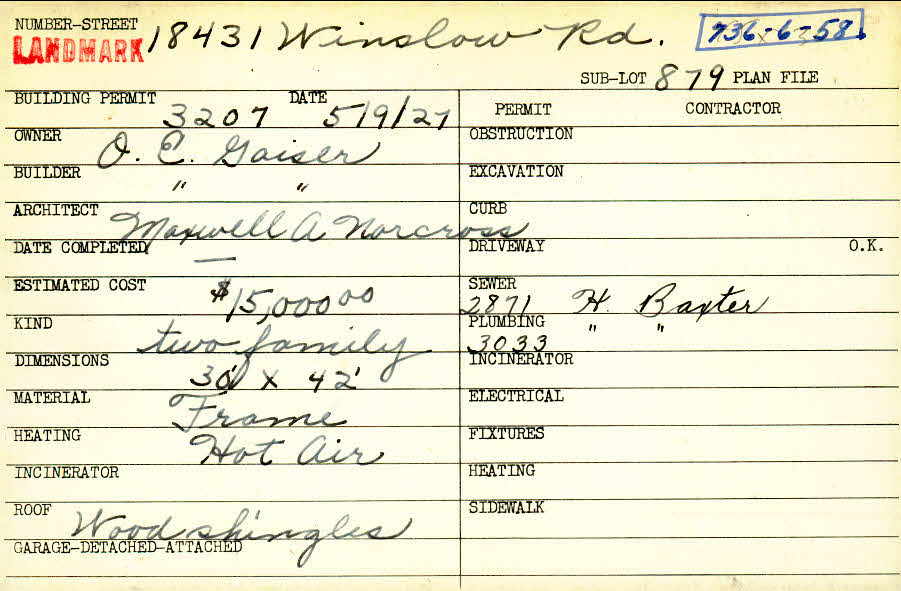 NUMBER-STREET 18431 Winslow Rd. 736-6-58
LANDMARK
SUB-LOT 879 PLAN FILE
BUILDING PERMIT 3207 DATE 5/9/27
PERMIT CONTRACTOR
OWNER O. E. Gaiser
OBSTRUCTION
BUILDER " "
EXCAVATION
ARCHITECT Maxwell A Norcross
CURB
DATE COMPLETED —
DRIVEWAY O.K.
ESTIMATED COST $15,000.00
SEWER 2871 H. Baxter
KIND two family
PLUMBING 3033 " "
DIMENSIONS 30' x 42'
INCINERATOR
MATERIAL Frame
ELECTRICAL
HEATING Hot Air
FIXTURES
INCINERATOR
HEATING
ROOF Wood shingles
SIDEWALK
GARAGE-DETACHED-ATTACHED